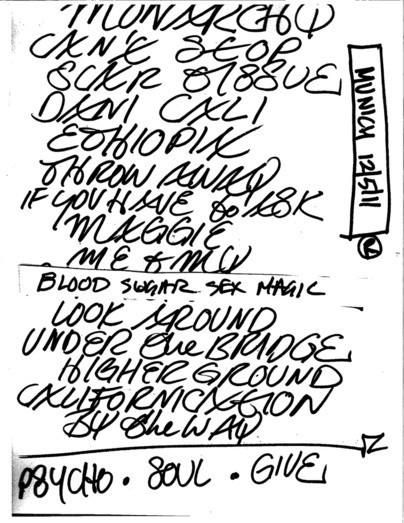 MONARCHY
CAN'T STOP
SCAR TISSUE
DANI CALI
ETHIOPIA
THROW AWAY
IF YOU HAVE to ASK
MAGGIE
ME & MY
BLOOD SUGAR SEX MAGIC
LOOK AROUND
UNDER the BRIDGE
HIGHER GROUND
CALIFORNICATION
By the WAY
PSYCHO . SOUL . GIVE
MUNICH 12/5/11